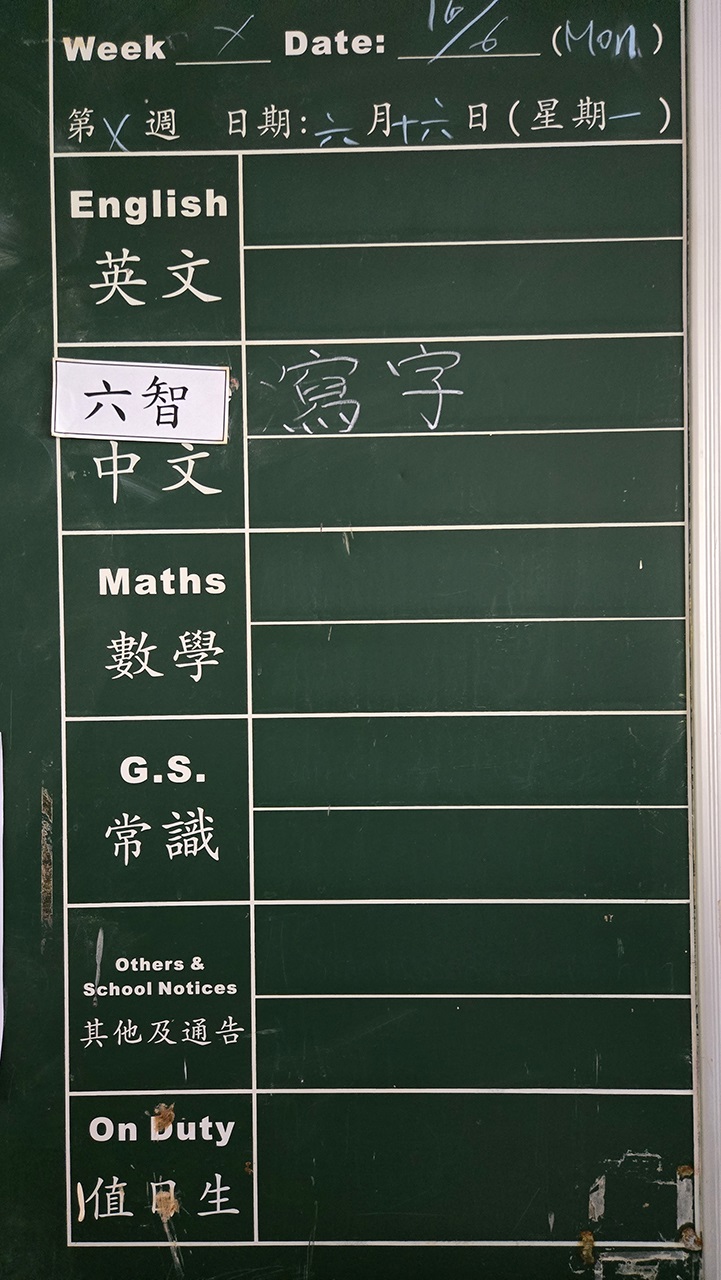 Week X Date: 16/6 (Mon)
第X週 日期:六月十六日(星期一)
English
英文
六智
寫字
中文
Maths
數學
G.S.
常識
Others &
School Notices
其他及通告
On Duty
值日生